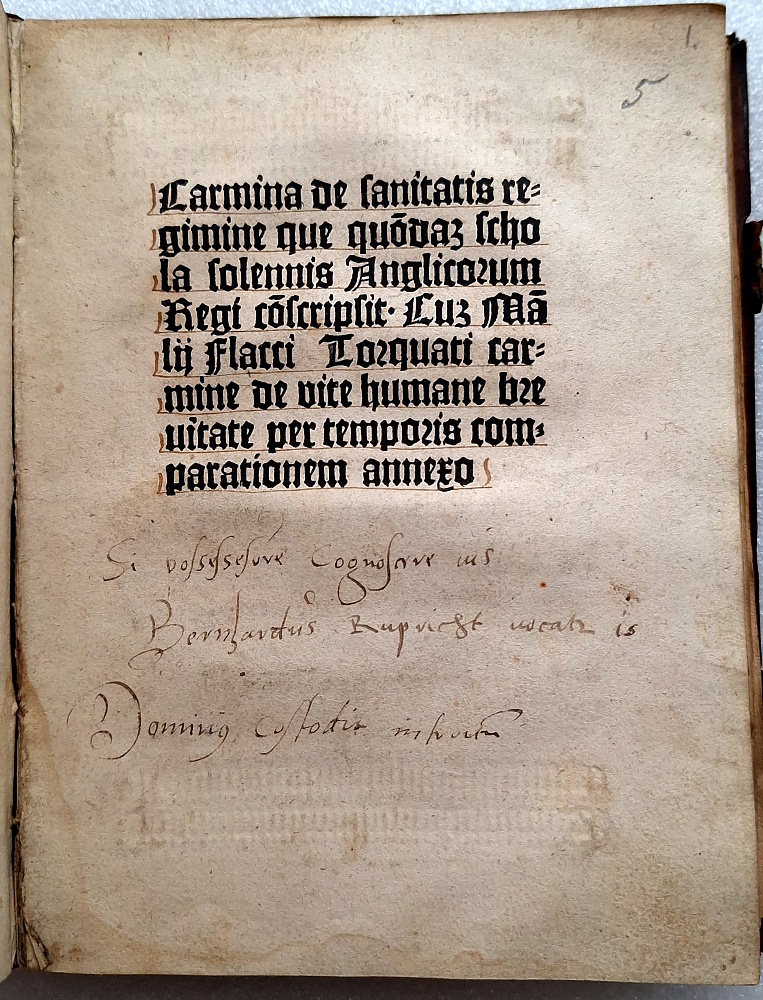 1.
5
Carmina de sanitatis re-
gimine que quōdaꝫ scho
la solennis Anglicorum
Regi cōscripsit. Cuꝫ Mā
lij Flacci Torquati car-
mine de vite humane bre
uitate per temporis com-
parationem annexo
Si possessorē Cognoscere uis
Bernhardus Rupricht uocatr is
Dominus Custodit